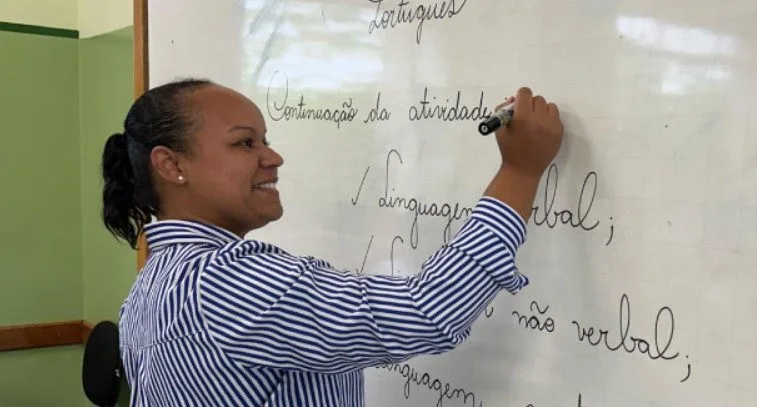 Português
Continuação da atividade
✓ Linguagem verbal;
✓ não verbal;
Linguagem